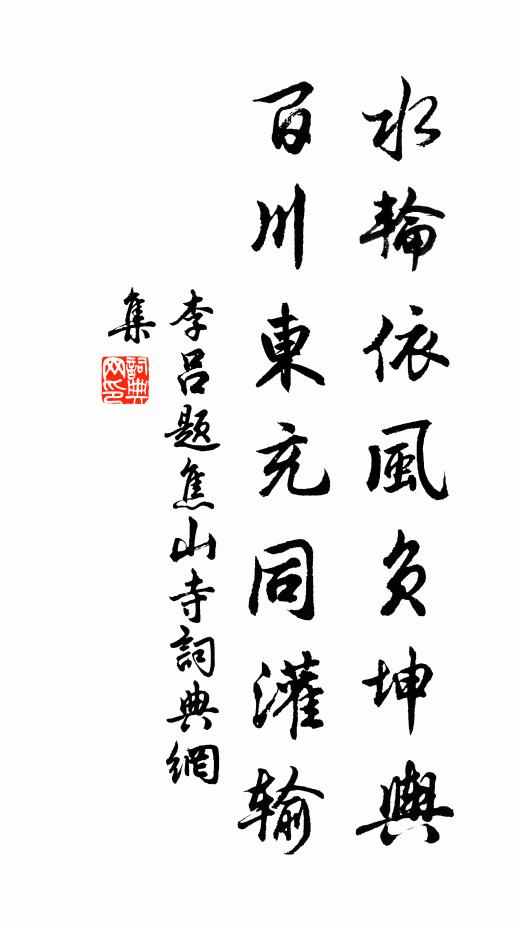 水輪依風負坤輿
百川東充同灌輸
李呂題焦山寺詞典網
集
詞典
网印